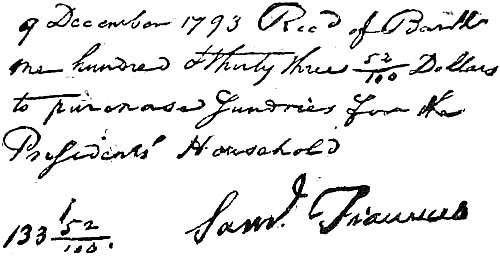 9 December 1793 Recd of Barth
one hundred & thirty three 52/100 Dollars
to purchase Sundries for the
Presidents' Household
133 52/100. Saml. Fraunces